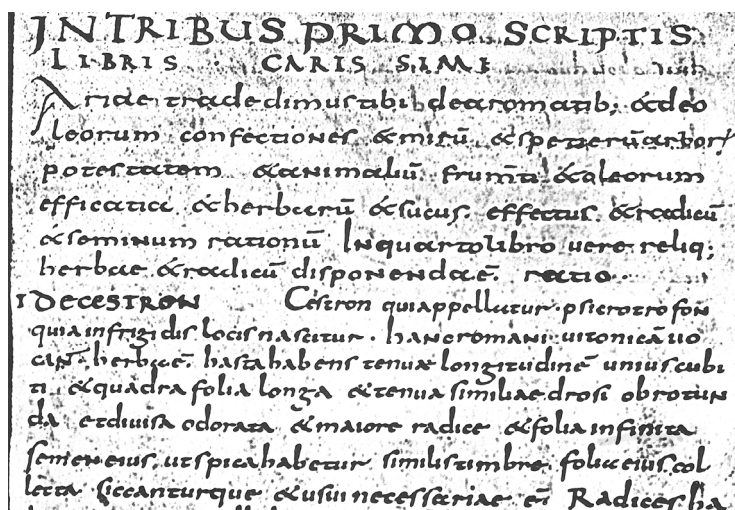 INTRIBUS PRIMO SCRIPTIS
LIBRIS CARISSIME
Ariae tradedimus tibi de aromatib; & de o
leorum confectiones & mirū & spetierū arbor
potestatem & animaliū frumti & oleorum
efficatia & herbarū & sucus effectus & radicū
& seminum rationū In quarto libro vere reliq;
herbae & radicū disponenda ē ratio
I DECESTRON Cestron qui appellatur psicrotrofon
quia in frigidis locis nascitur. hanc romani uitonicā uo
cant herba ē hasta habens tenuae longitudinē unius cubi
ti & quadra folia longa & tenua similia e drosi obrotun
da et divisa odorata & maiore radice & folia infinita
semen eius ut spica habetur similis timbre folia eius col
lecta siccanturque & usui necessariae ē Radices ha